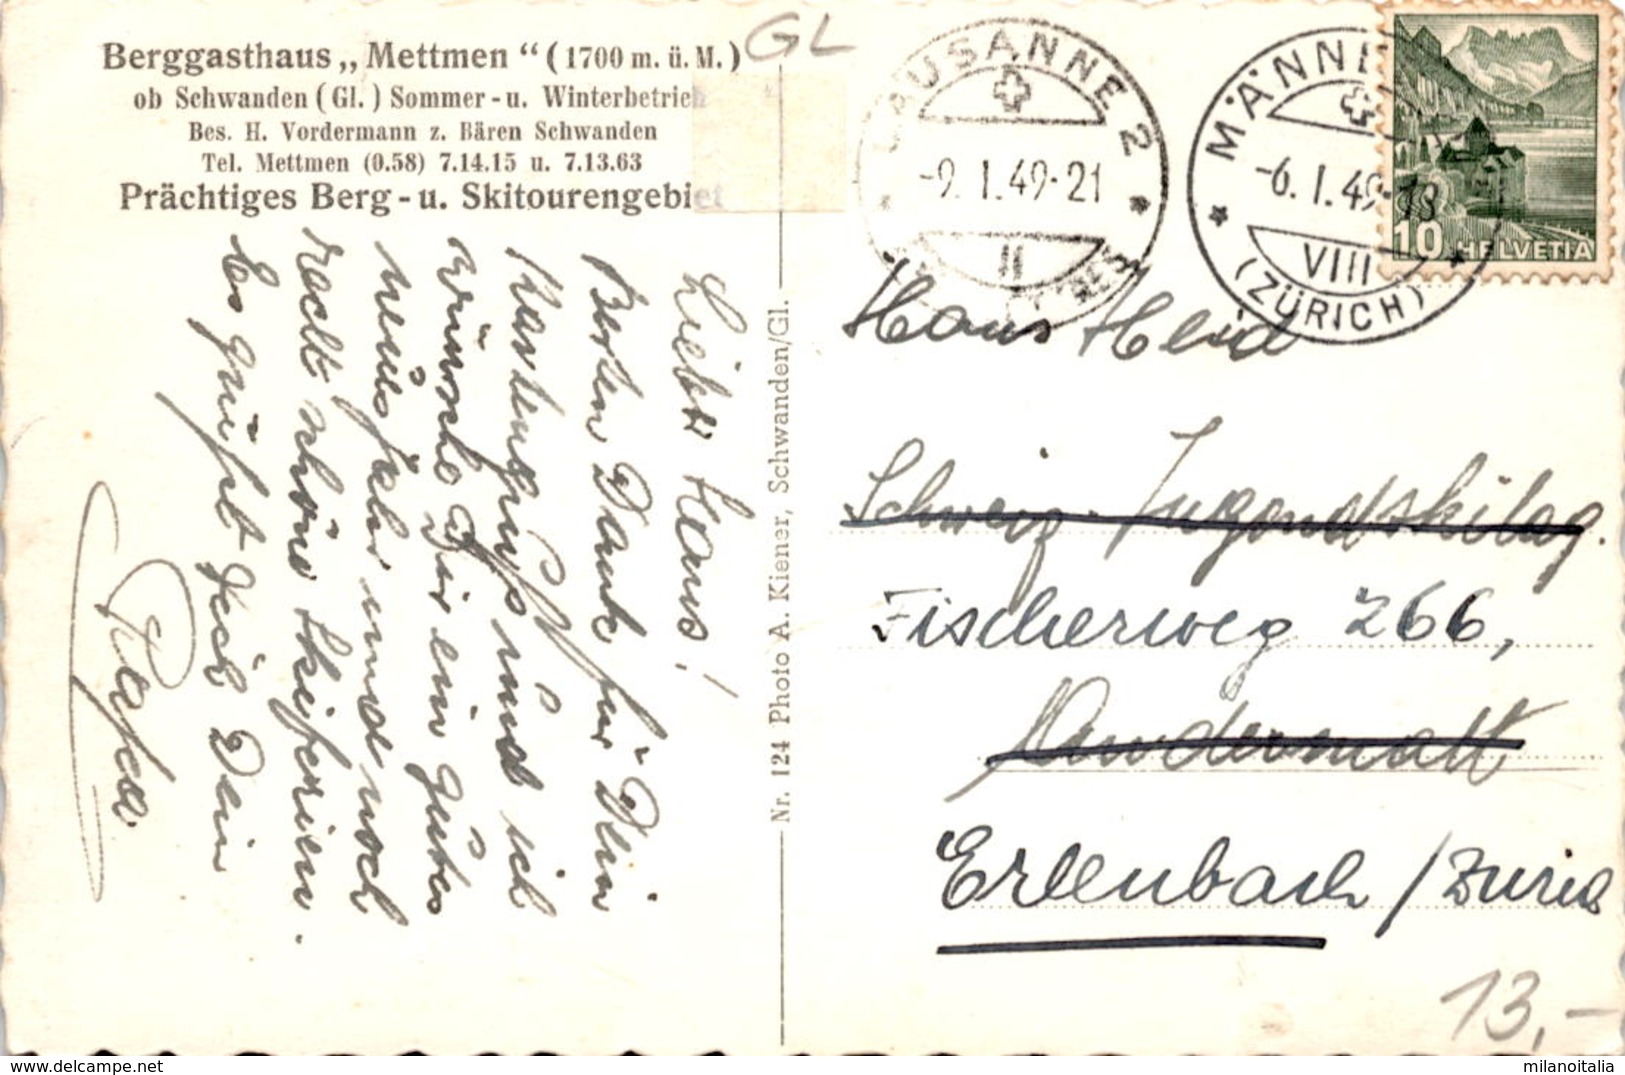 Berggasthaus „Mettmen“ (1700 m. ü. M.)
ob Schwanden (Gl.) Sommer - u. Winterbetrieb
Bes. H. Vordermann z. Bären Schwanden
Tel. Mettmen (0.58) 7.14.15 u. 7.13.63
Prächtiges Berg - u. Skitourengebiet
GL
LAUSANNE 2
-9. I. 49-21
II
MÄNNE
-6. I. 49-18
VIII
(ZÜRICH)
10 HELVETIA
Lieber Hans!
Besten Dank für Dein
Kartengruss und ich
wünsche Dir ein gutes
neues Jahr und noch
recht schöne Skiferien.
Es grüsst Dich Dein
Nr. 124 Photo A. Kiener, Schwanden/Gl.
Hans Heid
Schweiz. Jugendskilag.
Fischerweg 266,
Andermatt
Erlenbach / Zürich
13,-
milanoitalia